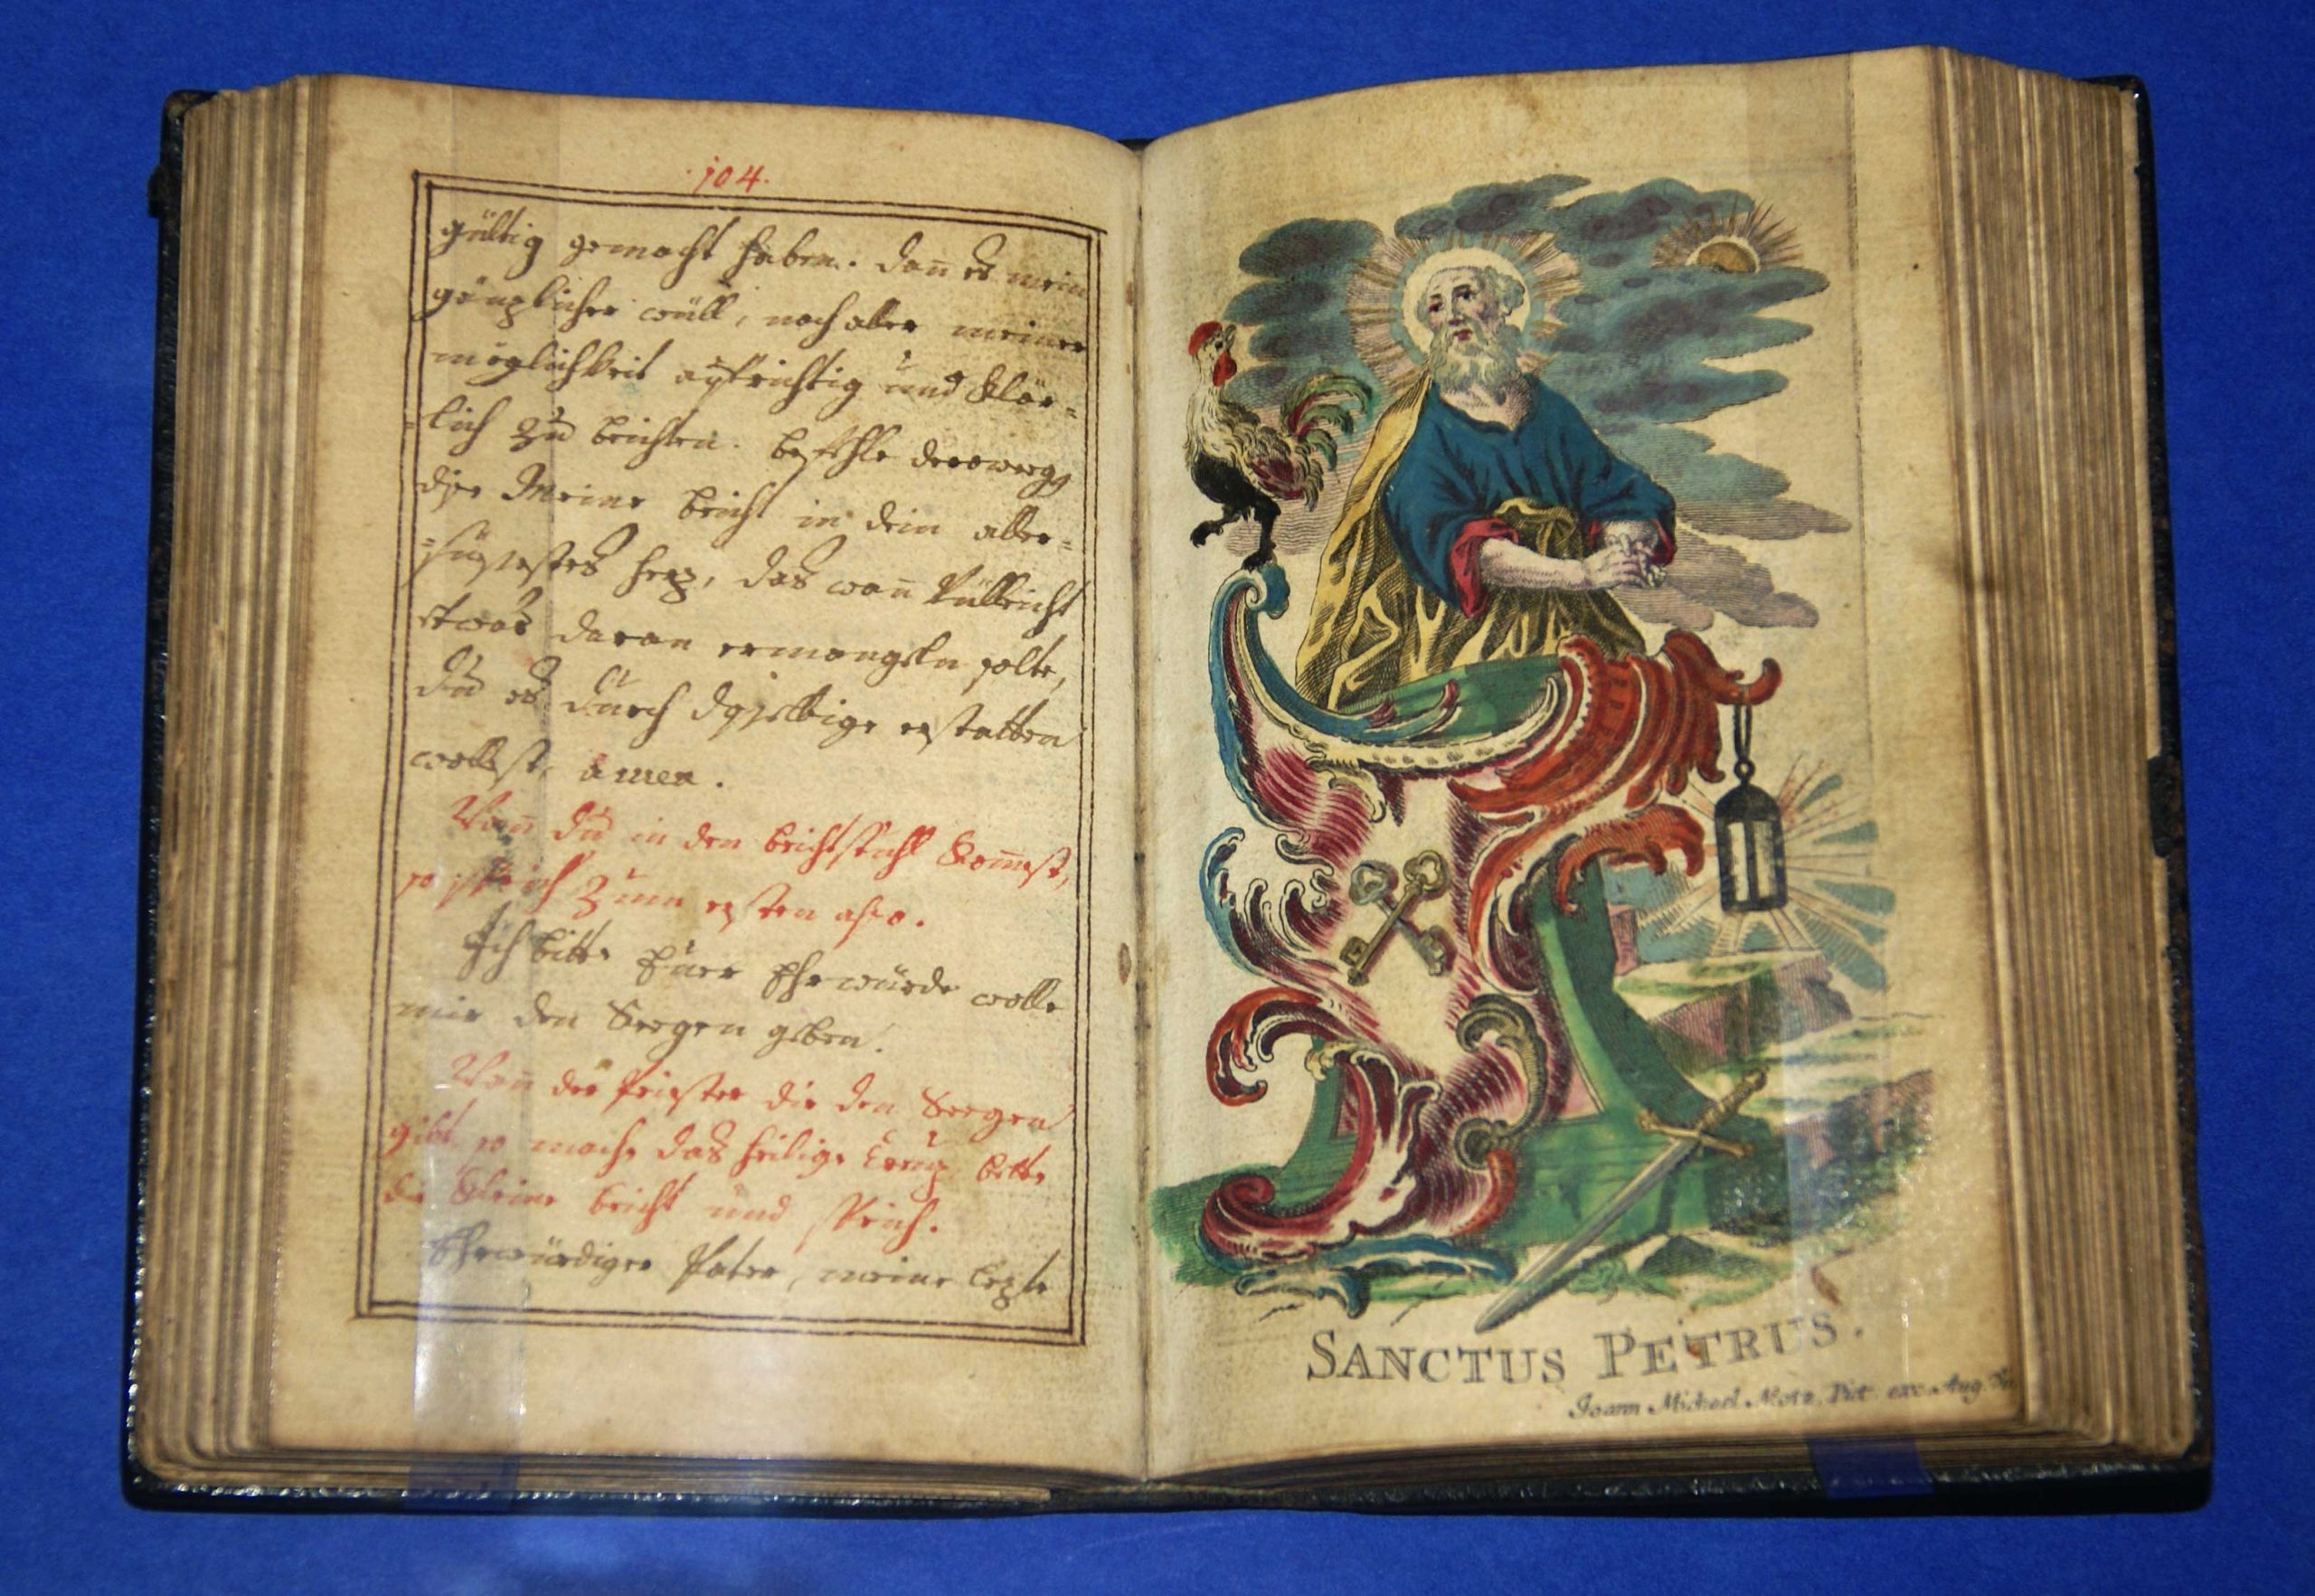 ·104·
gültig gemacht haben. dan̄ es mein
gänzlicher will, nach aller meiner
möglichkeit aufrichtig und klär-
-lich zu beichten. befehle derowegē
dise Meine beicht in dein aller-
-süssestes herz, das wan̄ villeicht
etwas daran ermangeln solte,
du es durch dasselbige erstatten
wollest, amen.
Wan̄ du in den beichtstuhl kom̄est,
so sprich zum ersten also.
Ich bitte Euer Ehrwürde wolle
mir den Seegen geben.
Wan̄ der Priester dir den Seegen
gibt so mache das heilige Creuz bette
die kleine beicht und sprich.
Ehrwürdiger Pater, meine lezte
SANCTUS PETRUS.
Joann Michael Motz, Pict. exc. Aug. Vin